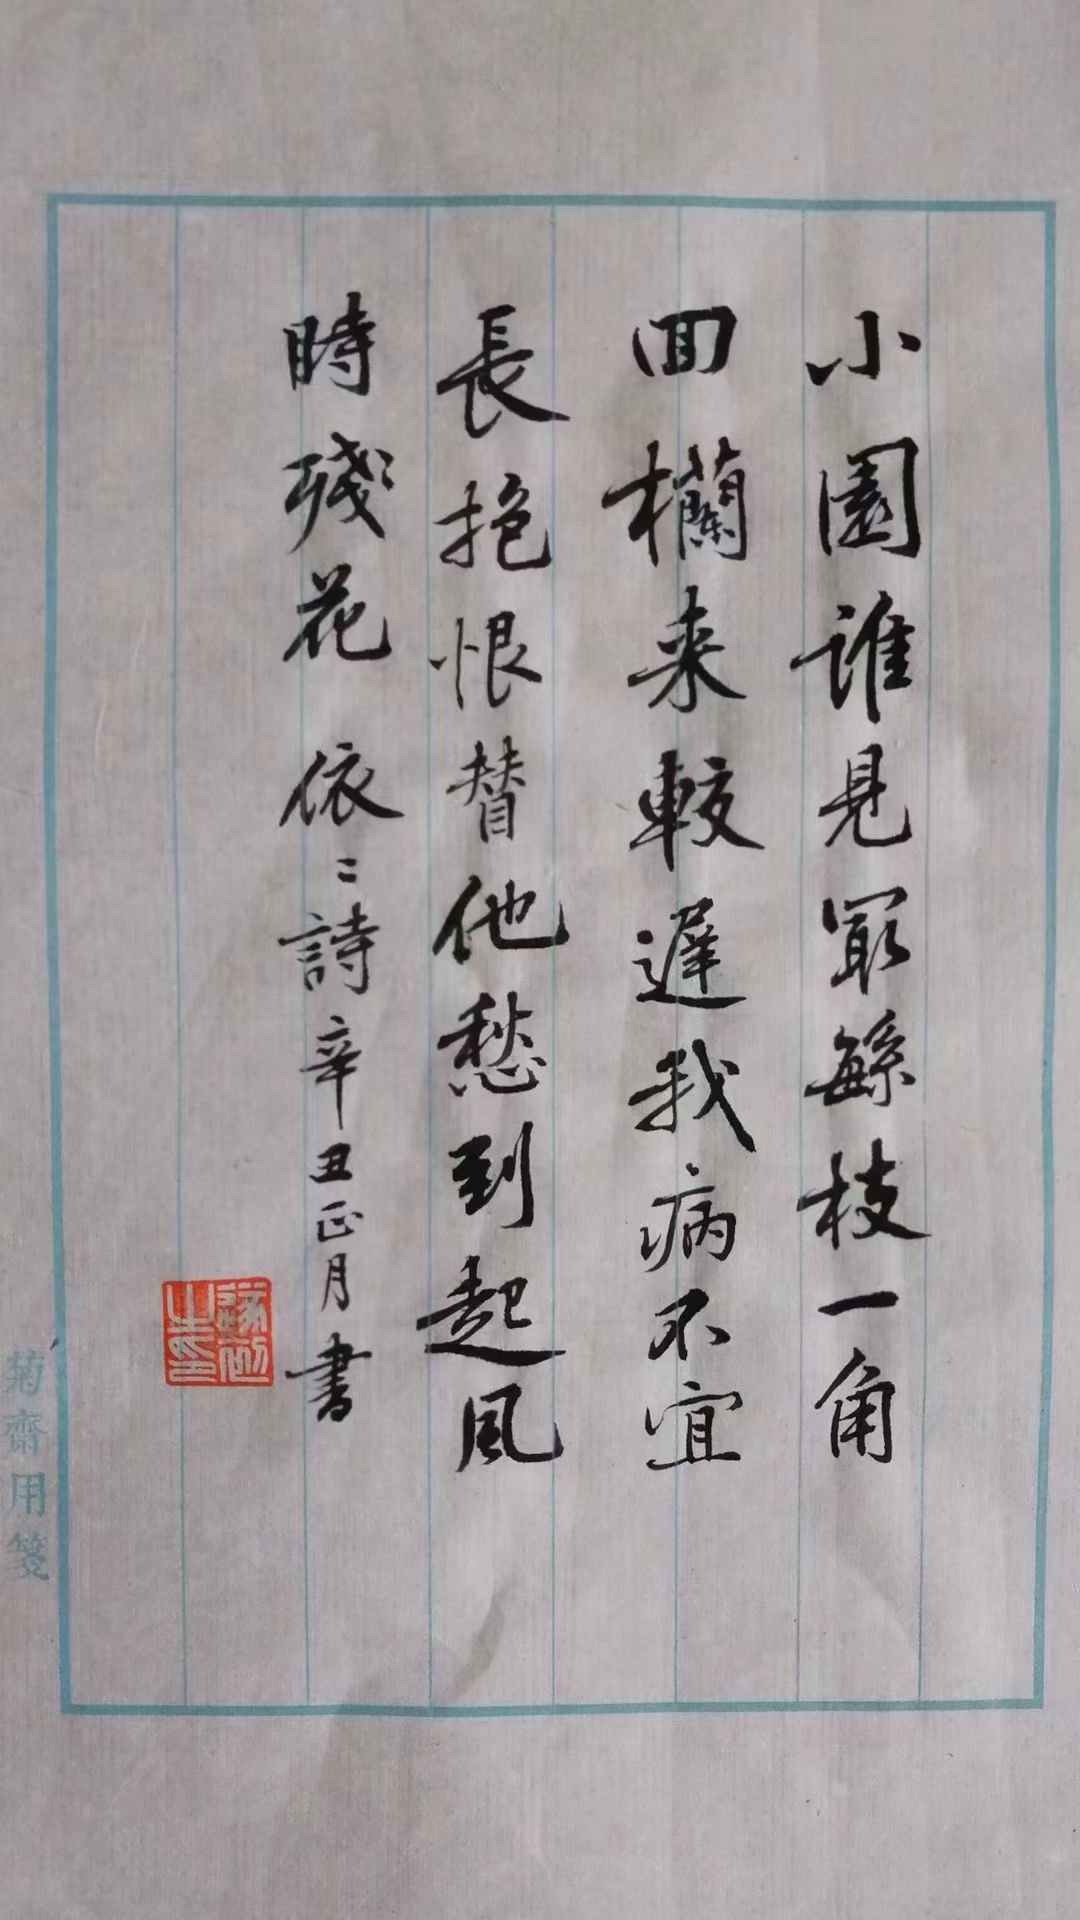 小園誰見冣繁枝一角
回欄来較遲我病不宜
長抱恨替他愁到起風
時殘花 依〻詩辛丑正月書
菊齋用箋